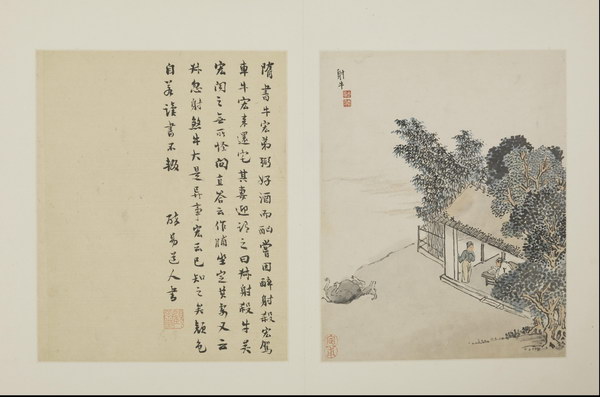 射牛
隋書牛宏弟弼好酒而酗嘗因醉射殺宏駕
車牛宏來還宅其妻迎謂之曰叔射殺牛矣
宏聞之無所怪問直答云作脯坐定其妻又云
叔忽射煞牛大是異事宏云已知之矣顏色
自若讀書不輟 易道人書